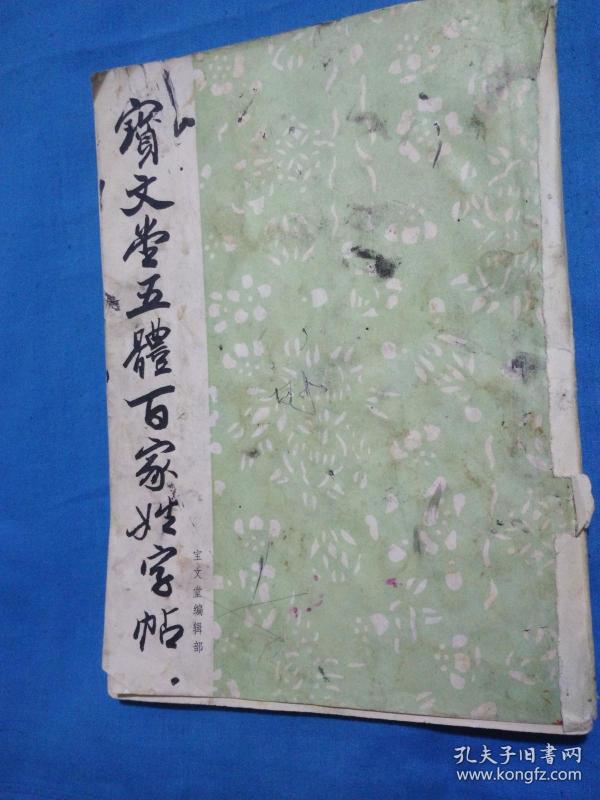 寳文堂五體百家姓字帖
宝文堂编辑部
孔夫子旧书网
www.kongfz.com